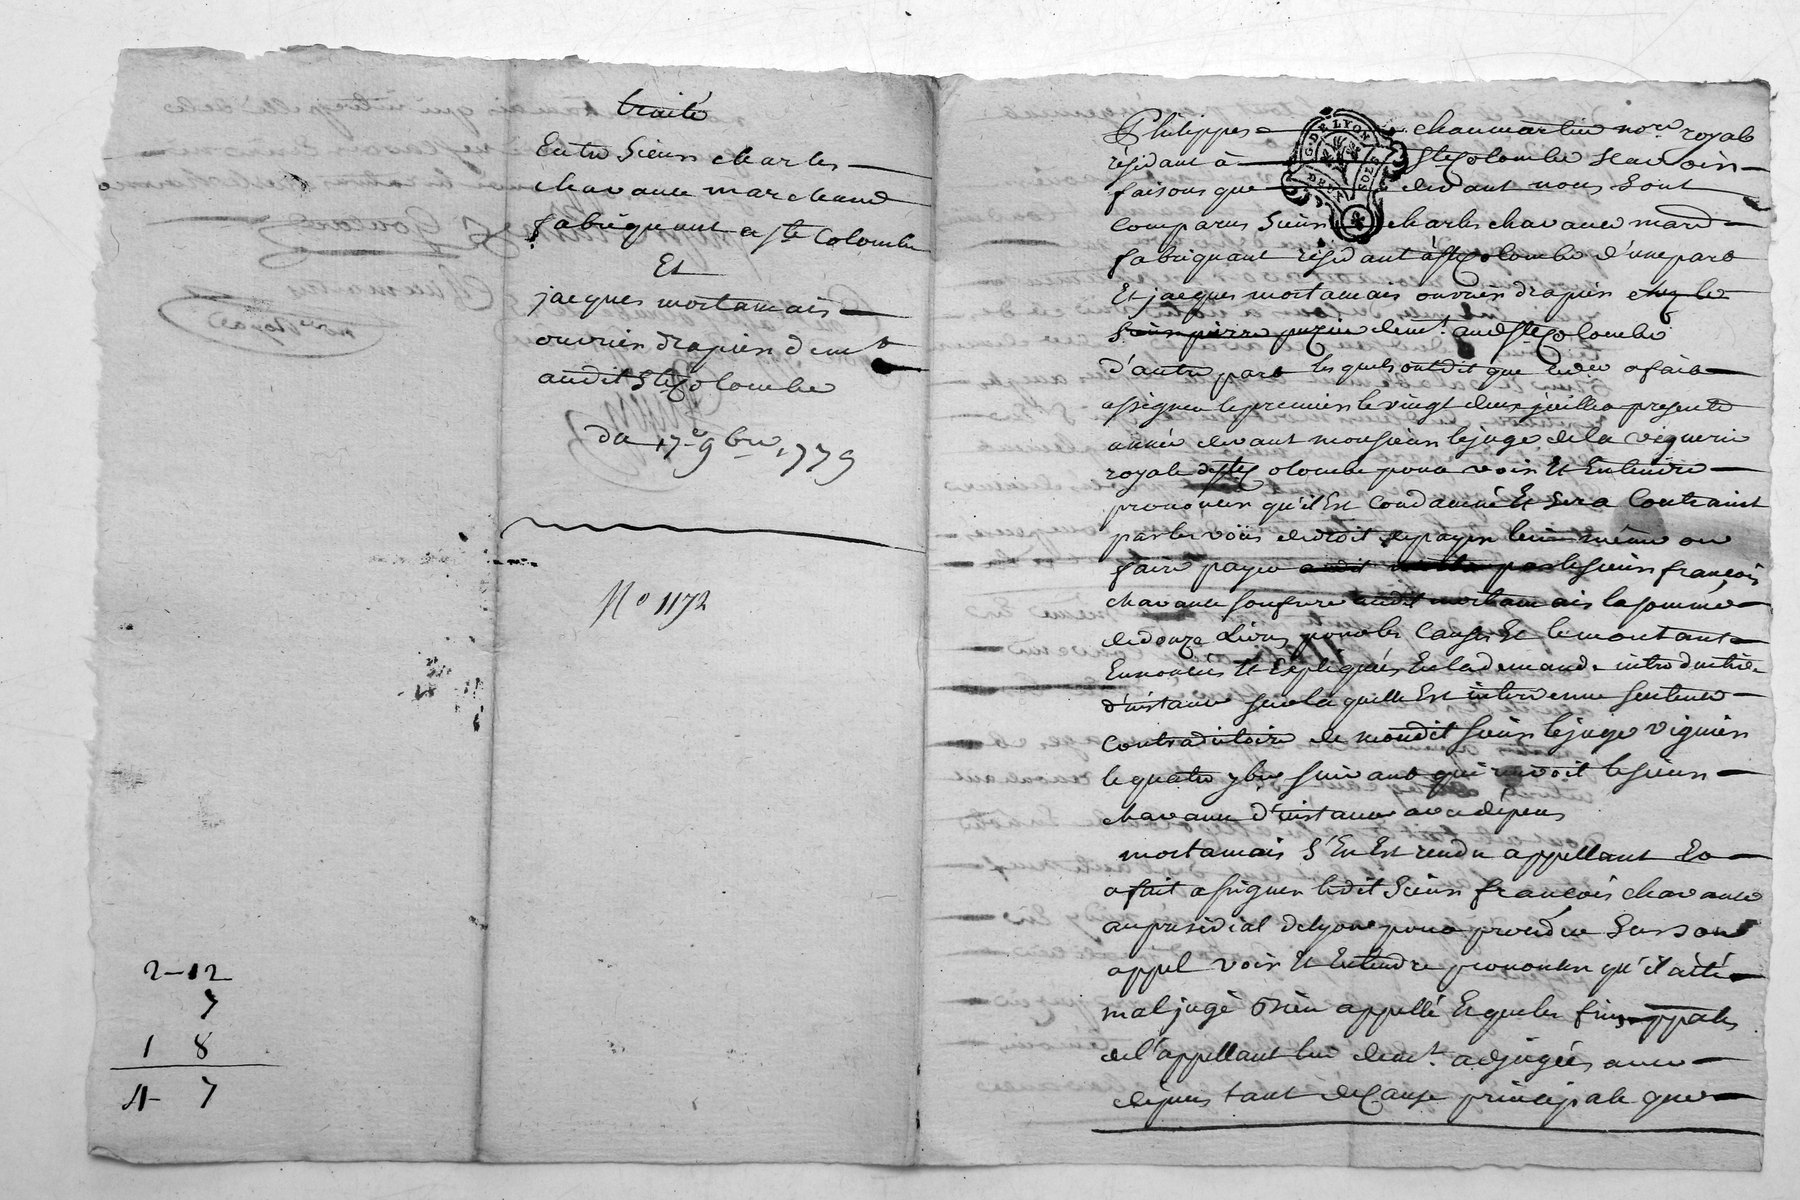 traité
Entre Sieur charles
chavance marchand
fabriquant a Ste Colombe
Et
jacques mortamais
ouvrier drapier demt
audit Ste Colombe
du 17e 9bre 1779
No 1172
2-12
7
1 8
4- 7
Philippes chaumartin nore royal
résidant à Ste Colombe scavoir
faisons que devant nous sont
comparus Sieur charles chavance mard
fabriquant résidant à Ste Colombe d'une part
Et jacques mortamais ouvrier drapier chez le
Sieur pierre demt. aud Ste Colombe
d'autre part lesquels ont dit que a fait
assigner le premier le vingt deux juillet presente
année devant monsieur le juge de la viguerie
royale de Ste Colombe pour voir Et Entendre
prononcer qu'il Est Condamné Et sera Contraint
par les voïes de droit de payer lui même ou
faire payer par le sieur françois
chavance son frere audit mortamais la somme
de douze Livres pour les Causes Et le montant
Enoncés Et Expliqués En la demande introductive
d'instance sur laquelle Est intervenue sentence
contradictoire de mondit sieur le juge viguier
le quatre 7bre suivant qui renvoit le sieur
chavance d'instance avec dépens
mortamais s'En Est rendu appellant Et
a fait assigner ledit Sieur françois chavance
au présidial de Lyon pour procéder sur son
appel voir Et Entendre prononcer qu'il a été
mal jugé Bien appellé Et que les fins ppales
de l'appellant lui demt. adjugées avec
dépens tant de Cause principale que